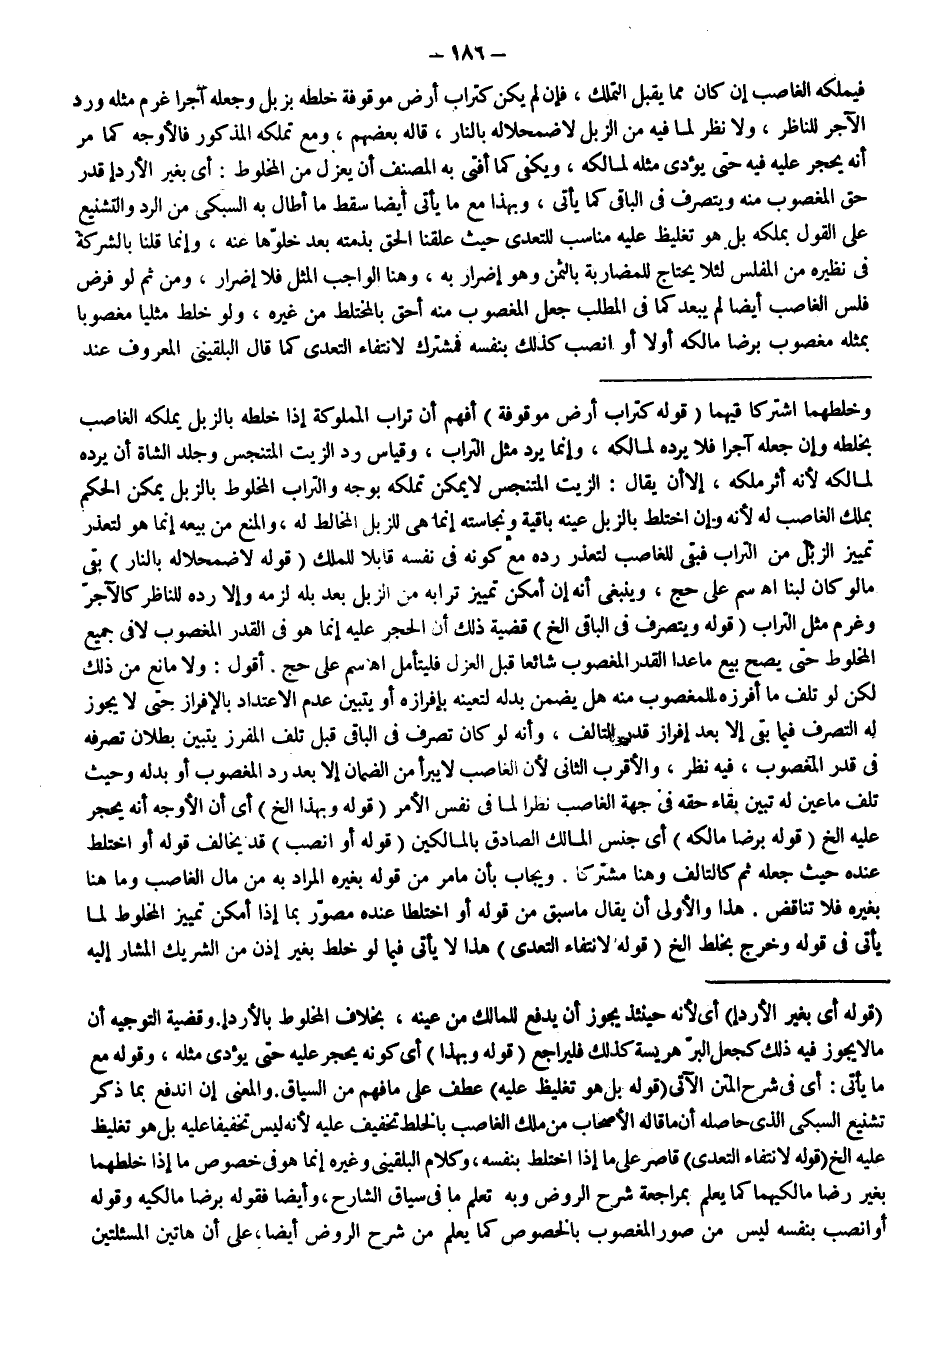 – ١٨٦ –
فيملكه الغاصب إن كان مما يقبل التملك ، فإن لم يكن كتراب أرض موقوفة خلطه بزبل وجعله آجرا غرم مثله ورد
الآجر للناظر ، ولا نظر لما فيه من الزبل لاضمحلاله بالنار ، قاله بعضهم ، ومع تملكه المذكور فالأوجه كما مر
أنه يحجر عليه فيه حتى يؤدى مثله لمالكه ، ويكفى كما أفتى به المصنف أن يعزل من المخلوط : أى بغير الأردإ قدر
حق المغصوب منه ويتصرف فى الباقى كما يأتى ، وبهذا مع ما يأتى أيضا سقط ما أطال به السبكى من الرد والتشنيع
على القول بملكه بل هو تغليظ عليه مناسب للتعدى حيث علقنا الحق بذمته بعد خلوّها عنه ، وإنما قلنا بالشركة
فى نظيره من المفلس لئلا يحتاج للمضاربة بالثمن وهو إضرار به ، وهنا الواجب المثل فلا إضرار ، ومن ثم لو فرض
فلس الغاصب أيضا لم يبعد كما فى المطلب جعل المغصوب منه أحق بالمختلط من غيره ، ولو خلط مثليا مغصوبا
بمثله مغصوب برضا مالكه أولا أو انصب كذلك بنفسه فمشترك لانتفاء التعدى كما قال البلقينى المعروف عند
وخلطهما اشتركا فيهما ( قوله كتراب أرض موقوفة ) أفهم أن تراب المملوكة إذا خلطه بالزبل يملكه الغاصب
بخلطه وإن جعله آجرا فلا يرده لمالكه ، وإنما يرد مثل التراب ، وقياس رد الزيت المتنجس وجلد الشاة أن يرده
لمالكه لأنه أثر ملكه ، إلا أن يقال : الزيت المتنجس لا يمكن تملكه بوجه والتراب المخلوط بالزبل يمكن الحكم
بملك الغاصب له لأنه وإن اختلط بالزبل عينه باقية ونجاسته إنما هى للزبل المخالط له ، والمنع من بيعه إنما هو لتعذر
تمييز الزبل من التراب فبقى للغاصب لتعذر رده مع كونه فى نفسه قابلا للملك ( قوله لاضمحلاله بالنار ) بقى
مالو كان لبنا اه سم على حج ، وينبغى أنه إن أمكن تمييز ترابه من الزبل بعد بله لزمه وإلا رده للناظر كالآجرّ
وغرم مثل التراب ( قوله ويتصرف فى الباقى الخ ) قضية ذلك أن الحجر عليه إنما هو فى القدر المغصوب لا فى جميع
المخلوط حتى يصح بيع ماعدا القدر المغصوب شائعا قبل العزل فليتأمل اه سم على حج . أقول : ولا مانع من ذلك
لكن لو تلف ما أفرزه للمغصوب منه هل يضمن بدله لتعينه بإفرازه أو يتبين عدم الاعتداد بالإفراز حتى لا يجوز
له التصرف فيما بقى إلا بعد إفراز قدر التالف ، وأنه لو كان تصرف فى الباقى قبل تلف المفرز يتبين بطلان تصرفه
فى قدر المغصوب ، فيه نظر ، والأقرب الثانى لأن الغاصب لا يبرأ من الضمان إلا بعد رد المغصوب أو بدله وحيث
تلف ماعين له تبين بقاء حقه فى جهة الغاصب نظرا لما فى نفس الأمر ( قوله وبهذا الخ ) أى أن الأوجه أنه يحجر
عليه الخ ( قوله برضا مالكه ) أى جنس المالك الصادق بالمالكين ( قوله أو انصب ) قد يخالف قوله أو اختلط
عنده حيث جعله ثم كالتالف وهنا مشتركا . ويجاب بأن مامر من قوله بغيره المراد به من مال الغاصب وما هنا
بغيره فلا تناقض . هذا والأولى أن يقال ماسبق من قوله أو اختلطا عنده مصوّر بما إذا أمكن تمييز المخلوط لما
يأتى فى قوله وخرج بخلط الخ ( قوله لانتفاء التعدى ) هذا لا يأتى فيما لو خلط بغير إذن من الشريك المشار إليه
(قوله أى بغير الأردإ) أى لأنه حينئذ يجوز أن يدفع للمالك من عينه ، بخلاف المخلوط بالأردإ. وقضية التوجيه أن
مالا يجوز فيه ذلك كجعل البرّ هريسة كذلك فليراجع (قوله وبهذا) أى كونه يحجر عليه حتى يؤدى مثله ، وقوله مع
ما يأتى : أى فى شرح المتن الآتى (قوله بل هو تغليظ عليه) عطف على مافهم من السياق. والمعنى إن اندفع بما ذكر
تشنيع السبكى الذى حاصله أن ما قاله الأصحاب من ملك الغاصب بالخلط تخفيف عليه لأنه ليس تخفيفا عليه بل هو تغليظ
عليه الخ (قوله لانتفاء التعدى) قاصر على ما إذا اختلط بنفسه، وكلام البلقينى وغيره إنما هو فى خصوص ما إذا خلطهما
بغير رضا مالكيهما كما يعلم بمراجعة شرح الروض وبه تعلم ما فى سياق الشارح، وأيضا فقوله برضا مالكيه وقوله
أو انصب بنفسه ليس من صور المغصوب بالخصوص كما يعلم من شرح الروض أيضا، على أن هاتين المسئلتين